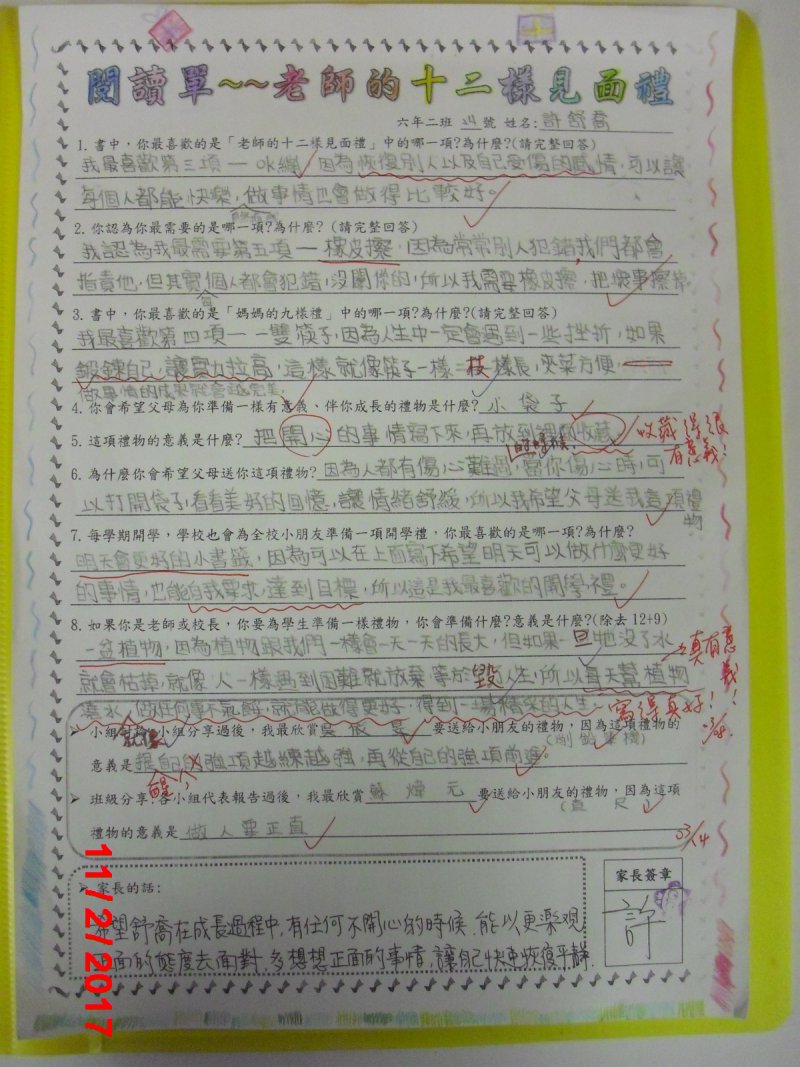 閱讀單~~老師的十二樣見面禮
六年二班 24號 姓名:許舒喬
1. 書中，你最喜歡的是「老師的十二樣見面禮」中的哪一項?為什麼?(請完整回答)
我最喜歡第三項一 ，因為恢復別人以及自己受傷的感情，可以讓
每個人都能快樂，做事情也會做得比較好。
2. 你認為你最需要的是哪一項?為什麼? (請完整回答)
我認為我最需要第五項一橡皮擦，因為常常別人犯錯，我們都會
指責他，但其實每個人都會犯錯，沒關係的，所以我需要橡皮擦，把壞事擦掉
3. 書中，你最喜歡的是「媽媽的九樣禮」中的哪一項?為什麼?(請完整回答)
我最喜歡第四項一一雙筷子，因為人生中一定會遇到一些挫折，如果
鍛鍊自己，讓實力拉高，這樣就像筷子一樣二枝一樣長，夾菜方便，
做事情的成果就會越完美。
4. 你會希望父母為你準備一樣有意義、伴你成長的禮物是什麼? 小袋子
5. 這項禮物的意義是什麼? 把開心的事情寫下來，再放到裡面收藏
收藏得很
有意義!
6. 為什麼你會希望父母送你這項禮物? 因為人都有傷心難過的時候，當你傷心時，可
以打開袋子，看看美好的回憶，讓情緒舒緩，所以我希望父母送我這項禮
物
7. 每學期開學，學校也會為全校小朋友準備一項開學禮，你最喜歡的是哪一項?為什麼?
明天會更好的小書籤，因為可以在上面寫下希望明天可以做什麼更好
的事情，也能自我要求，達到目標，所以這是我最喜歡的開學禮。
8. 如果你是老師或校長，你要為學生準備一樣禮物，你會準備什麼?意義是什麼?(除去 12+9)
一盆植物，因為植物跟我們一樣會一天一天的長大，但如果一旦牠沒了水
就會枯掉，就像人一樣遇到困難就放棄，等於毀人生，所以每天幫植物
澆水，做任何事不氣餒，就能做得更好，得到一場精采的人生。
真有意
義!
寫得真好!
小組討論:小組分享過後，我最欣賞 要送給小朋友的禮物，因為這項禮物的
(削鉛筆機)
意義是 自己的強項越練越強，再從自己的強項前進。
班級分享:各小組代表報告過後，我最欣賞 蘇煒元 要送給小朋友的禮物，因為這項
(直尺)
禮物的意義是 做人要正直
03/14
家長的話:
家長簽章
許
希望舒喬在成長過程中，有任何不開心的時候，能以更樂觀
正面的態度去面對，多想想正面的事情，讓自己快速恢復平靜.
11/2/2017